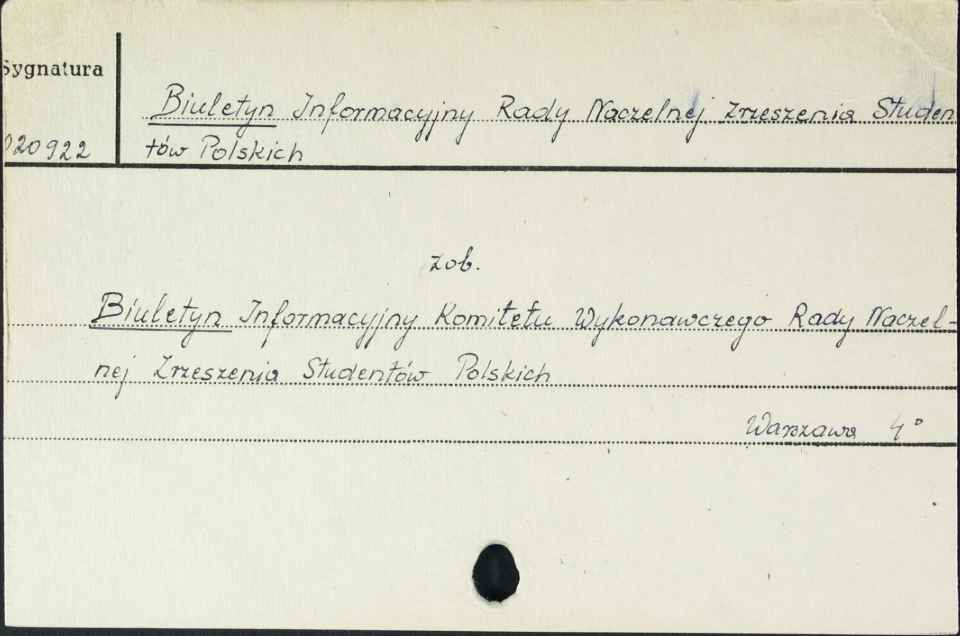 Sygnatura
Biuletyn Informacyjny Rady Naczelnej Zrzeszenia Studen
020922 tów Polskich
zob.
Biuletyn Informacyjny Komitetu Wykonawczego Rady Naczel-
nej Zrzeszenia Studentów Polskich
Warszawa 4°